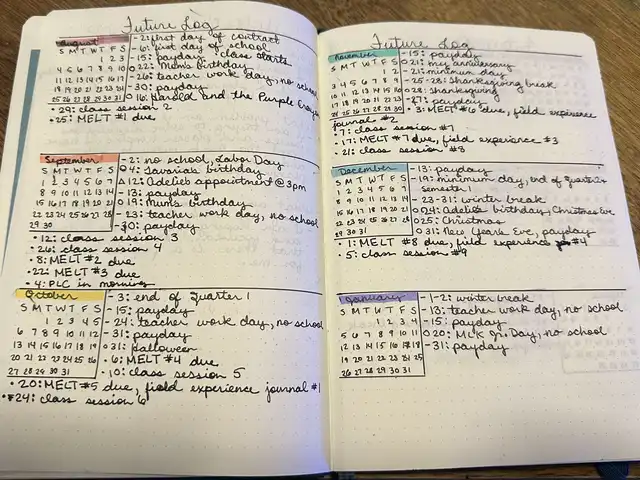 Future Log
August
S M T W T F S
1 2 3
4 5 6 7 8 9 10
11 12 13 14 15 16 17
18 19 20 21 22 23 24
25 26 27 28 29 30 31
- 2: first day of contract
- 6: first day of school
- 15: payday, class starts
o 22: Mum's birthday
- 26: teacher work day, no school
- 30: payday
o 16: Harold and the Purple Crayon
• 29: class session 2
• 25: MELT #1 due
September
S M T W T F S
1 2 3 4 5 6 7
8 9 10 11 12 13 14
15 16 17 18 19 20 21
22 23 24 25 26 27 28
29 30
- 2: no school, Labor Day
o 4: birthday
Δ 12: Adelie's appointment @ 3pm
- 13: payday
o 19: Mum's birthday
- 23: teacher work day, no school
- 30: payday
• 12: class session 3
• 26: class session 4
• 8: MELT #2 due
• 22: MELT #3 due
• 4: PLC in morning
October
S M T W T F S
1 2 3 4 5
6 7 8 9 10 11 12
13 14 15 16 17 18 19
20 21 22 23 24 25 26
27 28 29 30 31
- 3: end of Quarter 1
- 15: payday
- 24: teacher work day, no school
- 31: payday
o 31: Halloween
• 6: MELT #4 due
• 10: class session 5
• 20: MELT #5 due, field experience journal #1
• 24: class session 6
Future Log
November
S M T W T F S
1 2
3 4 5 6 7 8 9
10 11 12 13 14 15 16
17 18 19 20 21 22 23
24 25 26 27 28 29 30
- 15: payday
o 21: my anniversary
- 21: minimum day
- 25-28: Thanksgiving break
o 28: Thanksgiving
- 27: payday
• 3: MELT #6 due, field experience
journal #2
• 7: class session #7
• 17: MELT #7 due, field experience #3
• 21: class session #8
December
S M T W T F S
1 2 3 4 5 6 7
8 9 10 11 12 13 14
15 16 17 18 19 20 21
22 23 24 25 26 27 28
29 30 31
- 13: payday
- 19: minimum day, end of Quarter 2 +
Semester 1
- 23-31: winter break
o 24: Adelie's birthday, Christmas Eve
o 25: Christmas
o 31: New Year's Eve, payday
• 1: MELT #8 due, field experience #4
• 5: class session #9
January
S M T W T F S
1 2 3 4
5 6 7 8 9 10 11
12 13 14 15 16 17 18
19 20 21 22 23 24 25
26 27 28 29 30 31
- 1-2: winter break
- 13: teacher work day, no school
- 15: payday
o 20: MLK Jr. Day, no school
- 31: payday